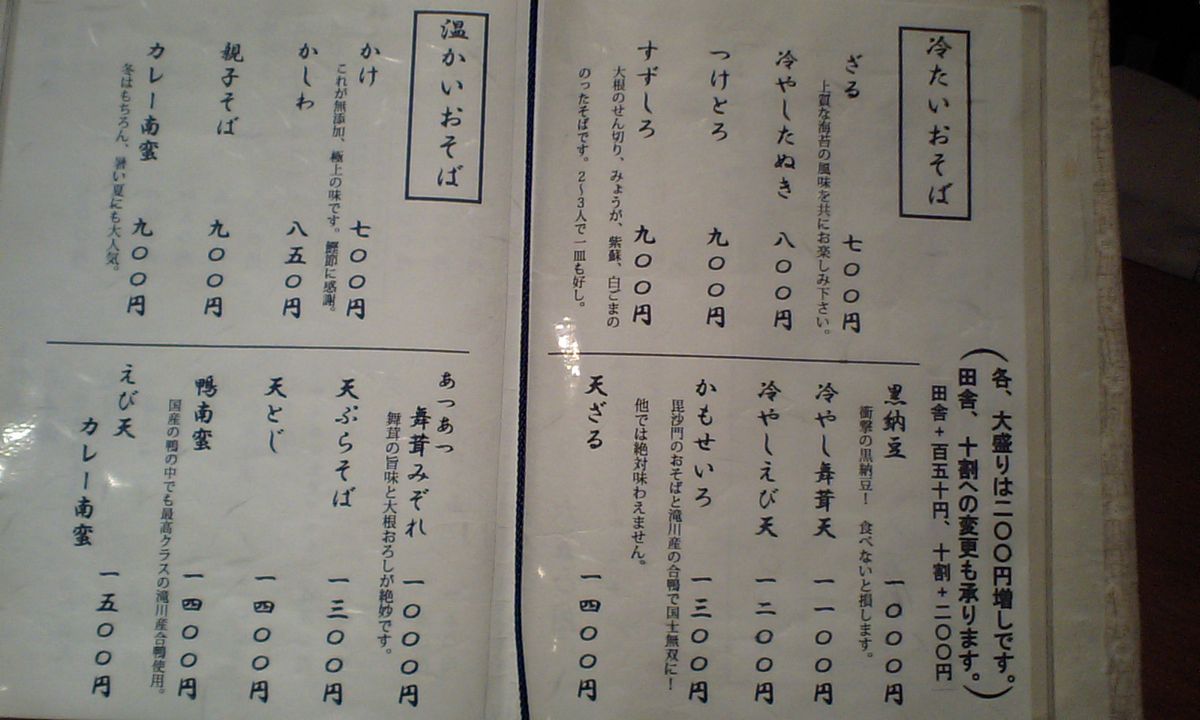 冷たいおそば
(各、大盛りは二〇〇円増しです。
田舎、十割への変更も承ります。)
田舎+百五十円、十割+二〇〇円
ざる 七〇〇円
上質な海苔の風味を共にお楽しみ下さい。
冷やしたぬき 八〇〇円
つけとろ 九〇〇円
すずしろ 九〇〇円
大根のせん切り、みょうが、紫蘇、白ごまの
のったそばです。2〜3人で一皿も好し。
黒納豆 一〇〇〇円
衝撃の黒納豆! 食べないと損します。
冷やし舞茸天 一一〇〇円
冷やしえび天 一二〇〇円
かもせいろ 一三〇〇円
毘沙門のおそばと滝川産の合鴨で国士無双に!
他では絶対味わえません。
天ざる 一四〇〇円
温かいおそば
かけ 七〇〇円
これが無添加、極上の味です。鰹節に感謝。
かしわ 八五〇円
親子そば 九〇〇円
カレー南蛮 九〇〇円
冬はもちろん、暑い夏にも大人気。
あっあつ
舞茸みぞれ 一〇〇〇円
舞茸の旨味と大根おろしが絶妙です。
天ぷらそば 一三〇〇円
天とじ 一四〇〇円
鴨南蛮 一四〇〇円
国産の鴨の中でも最高クラスの滝川産合鴨使用。
えび天
カレー南蛮 一五〇〇円